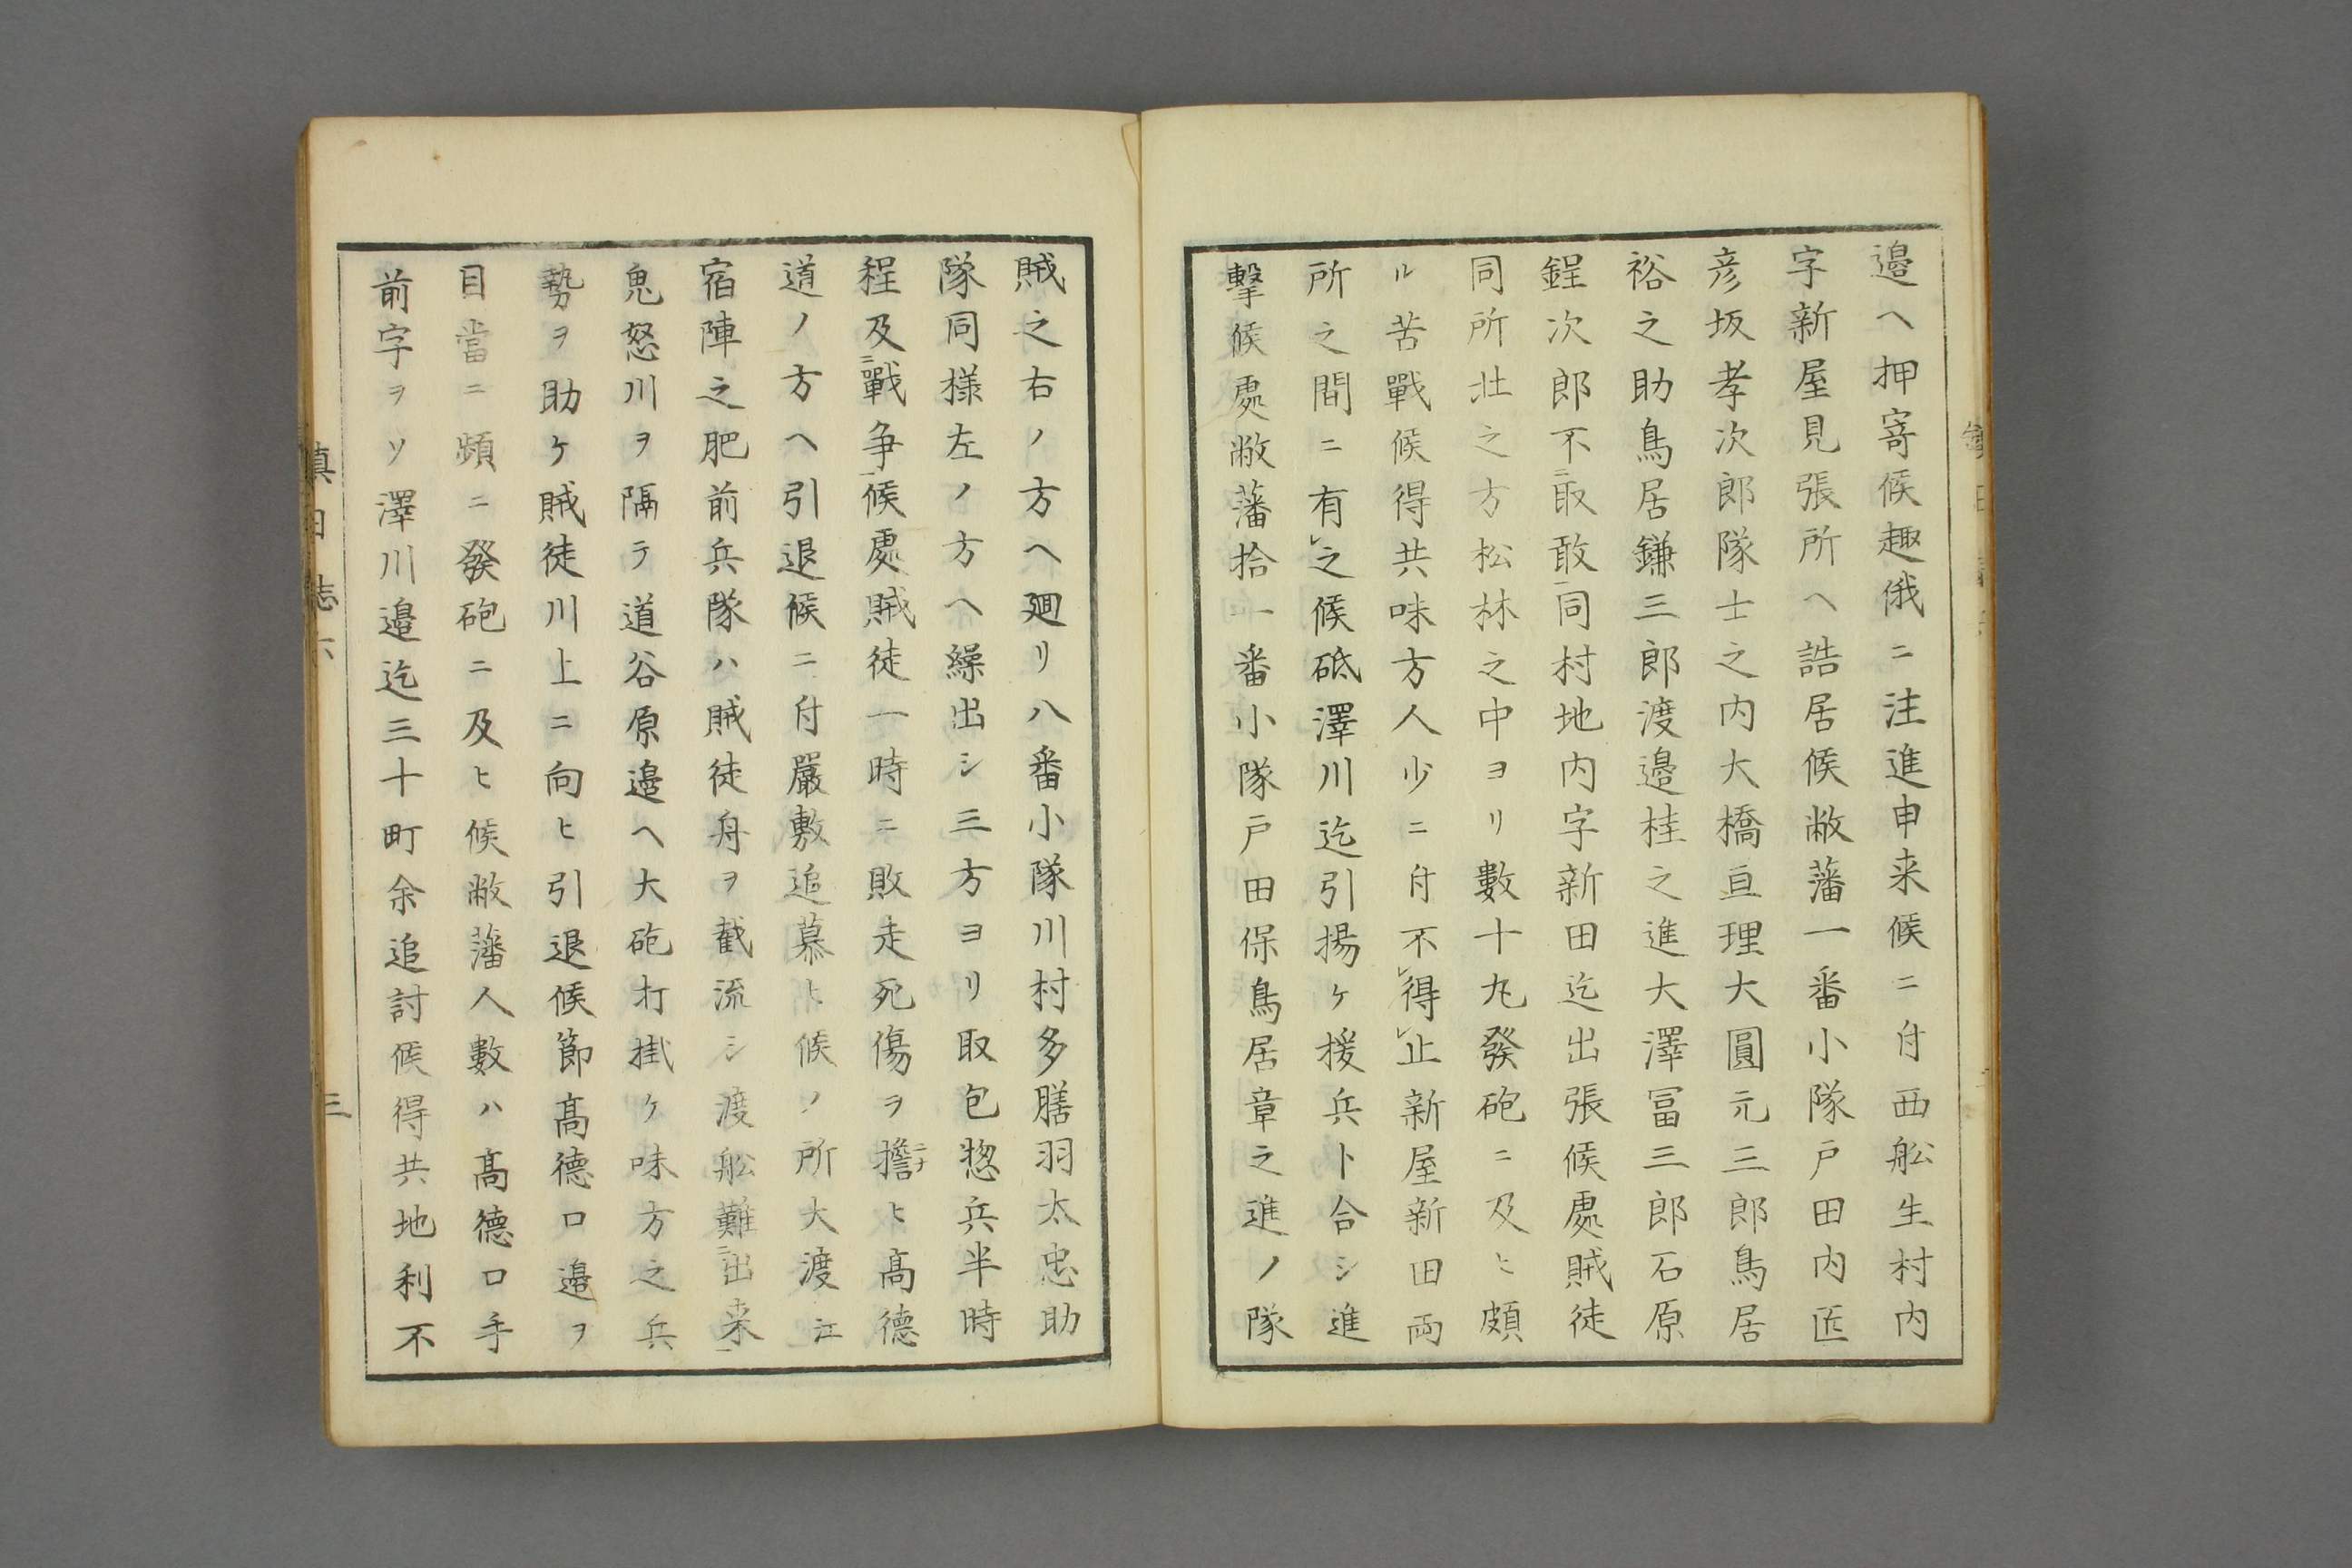 邉ヘ押寄候趣俄ニ注進申来候ニ付西舩生村内
字新屋見張所ヘ詰居候敝藩一番小隊戸田内匠
彦坂孝次郎隊士之内大橋亘理大圓元三郎鳥居
裕之助鳥居鎌三郎渡邉桂之進大澤冨三郎石原
鋥次郎不二取敢一同村地内字新田迄出張候處賊徒
同所壮之方松林之中ヨリ數十丸發砲ニ及ヒ頗
ル苦戰候得共味方人少ニ付不レ得レ止新屋新田両
所之間ニ有レ之候砥澤川迄引揚ケ援兵ト合シ進
撃候處敝藩拾一番小隊戸田保鳥居章之進ノ隊
賊之右ノ方ヘ廻リ八番小隊川村多膳羽太忠助
隊同様左ノ方ヘ繰出シ三方ヨリ取包惣兵半時
程及二戰争一候處賊徒一時ニ敗走死傷ヲ擔ニナヒ高德
道ノ方ヘ引退候ニ付嚴敷追慕ヒ候ノ所大渡江
宿陣之肥前兵隊ハ賊徒舟ヲ截流シ渡舩難二出来一
鬼怒川ヲ隔テ道谷原邉ヘ大砲打掛ケ味方之兵
勢ヲ助ケ賊徒川上ニ向ヒ引退候節高德口邉ヲ
目當ニ頻ニ發砲ニ及ヒ候敝藩人數ハ高德口手
前字ヲソ澤川邉迄三十町余追討候得共地利不
鎮日誌六
三